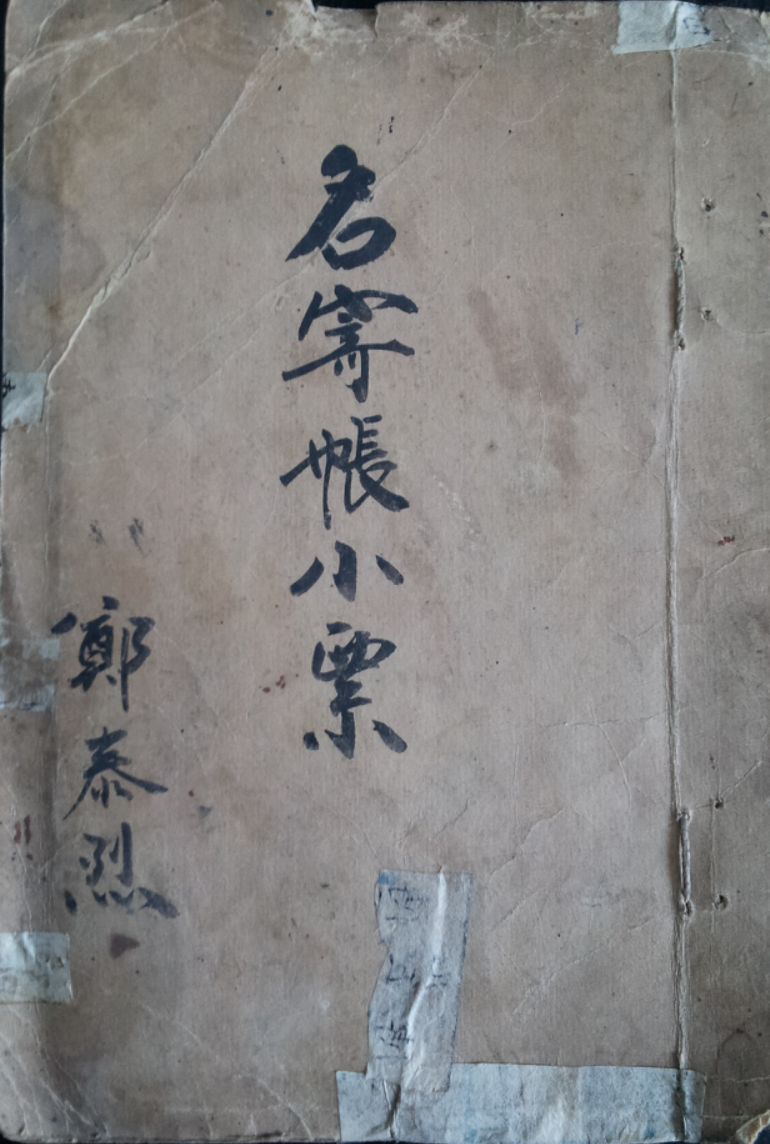 名寄帳小票
鄭泰烈